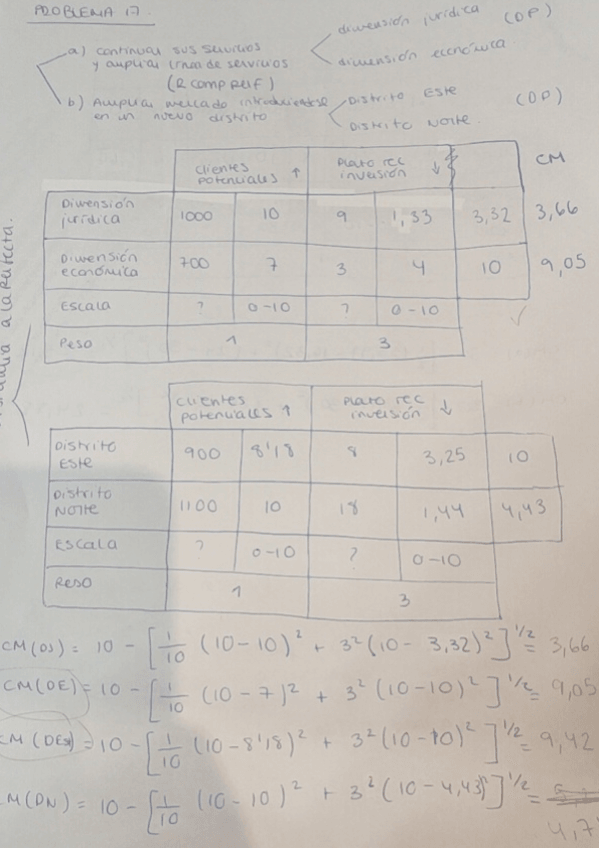 PROBLEMA 17.
a) continuar sus servicios y ampliar línea de servicios (R comp Reif)
dimensión jurídica
dimensión económica.
(OP)
b) Ampliar mercado introduciéndose en un nuevo distrito
Distrito Este
Distrito Norte.
(OP)
a la Perfecta.
Clientes potenciales ↑ Plazo rec inversión ↓ CM
Dimensión jurídica 1000 10 9 1,33 3,32 3,66
Dimensión económica 700 7 3 4 10 9,05
Escala ? 0-10 ? 0-10
Peso 1 3
Clientes potenciales ↑ Plazo rec inversión ↓
Distrito Este 900 8'18 8 3,25 10
Distrito Norte 1100 10 18 1,44 4,43
Escala ? 0-10 ? 0-10
Peso 1 3
CM(DJ) = 10 - [1/10 (10-10)² + 3²(10-3,32)²]^1/2 = 3,66
CM(DE) = 10 - [1/10 (10-7)² + 3²(10-10)²]^1/2 = 9,05
CM(DEst) = 10 - [1/10 (10-8'18)² + 3²(10-10)²]^1/2 = 9,42
CM(DN) = 10 - [1/10 (10-10)² + 3²(10-4,43)²]^1/2 =
4,7